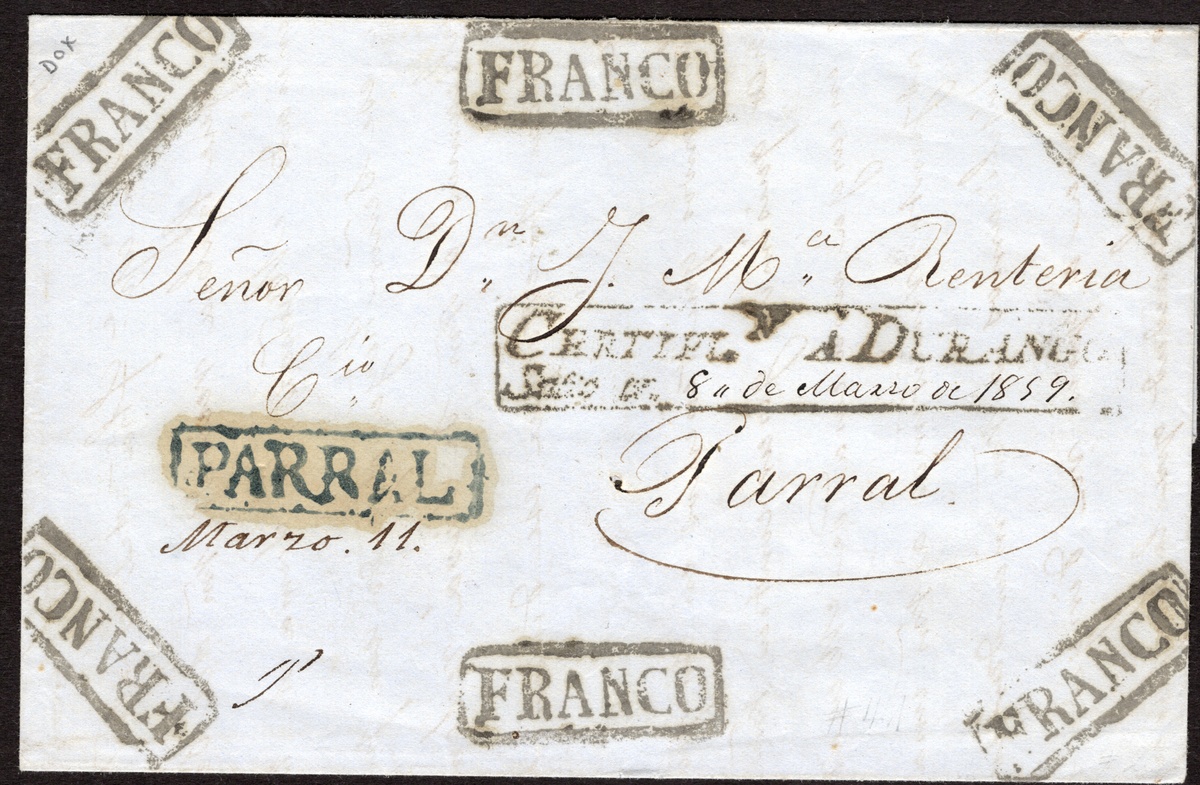 DOX
FRANCO
FRANCO
FRANCO
Señor Dn. J. Ma. Renteria
CERTIFI N A DURANGO
Cio
8 de Marzo de 1859.
PARRAL
Parral
Marzo. 11.
FRANCO
FRANCO
FRANCO